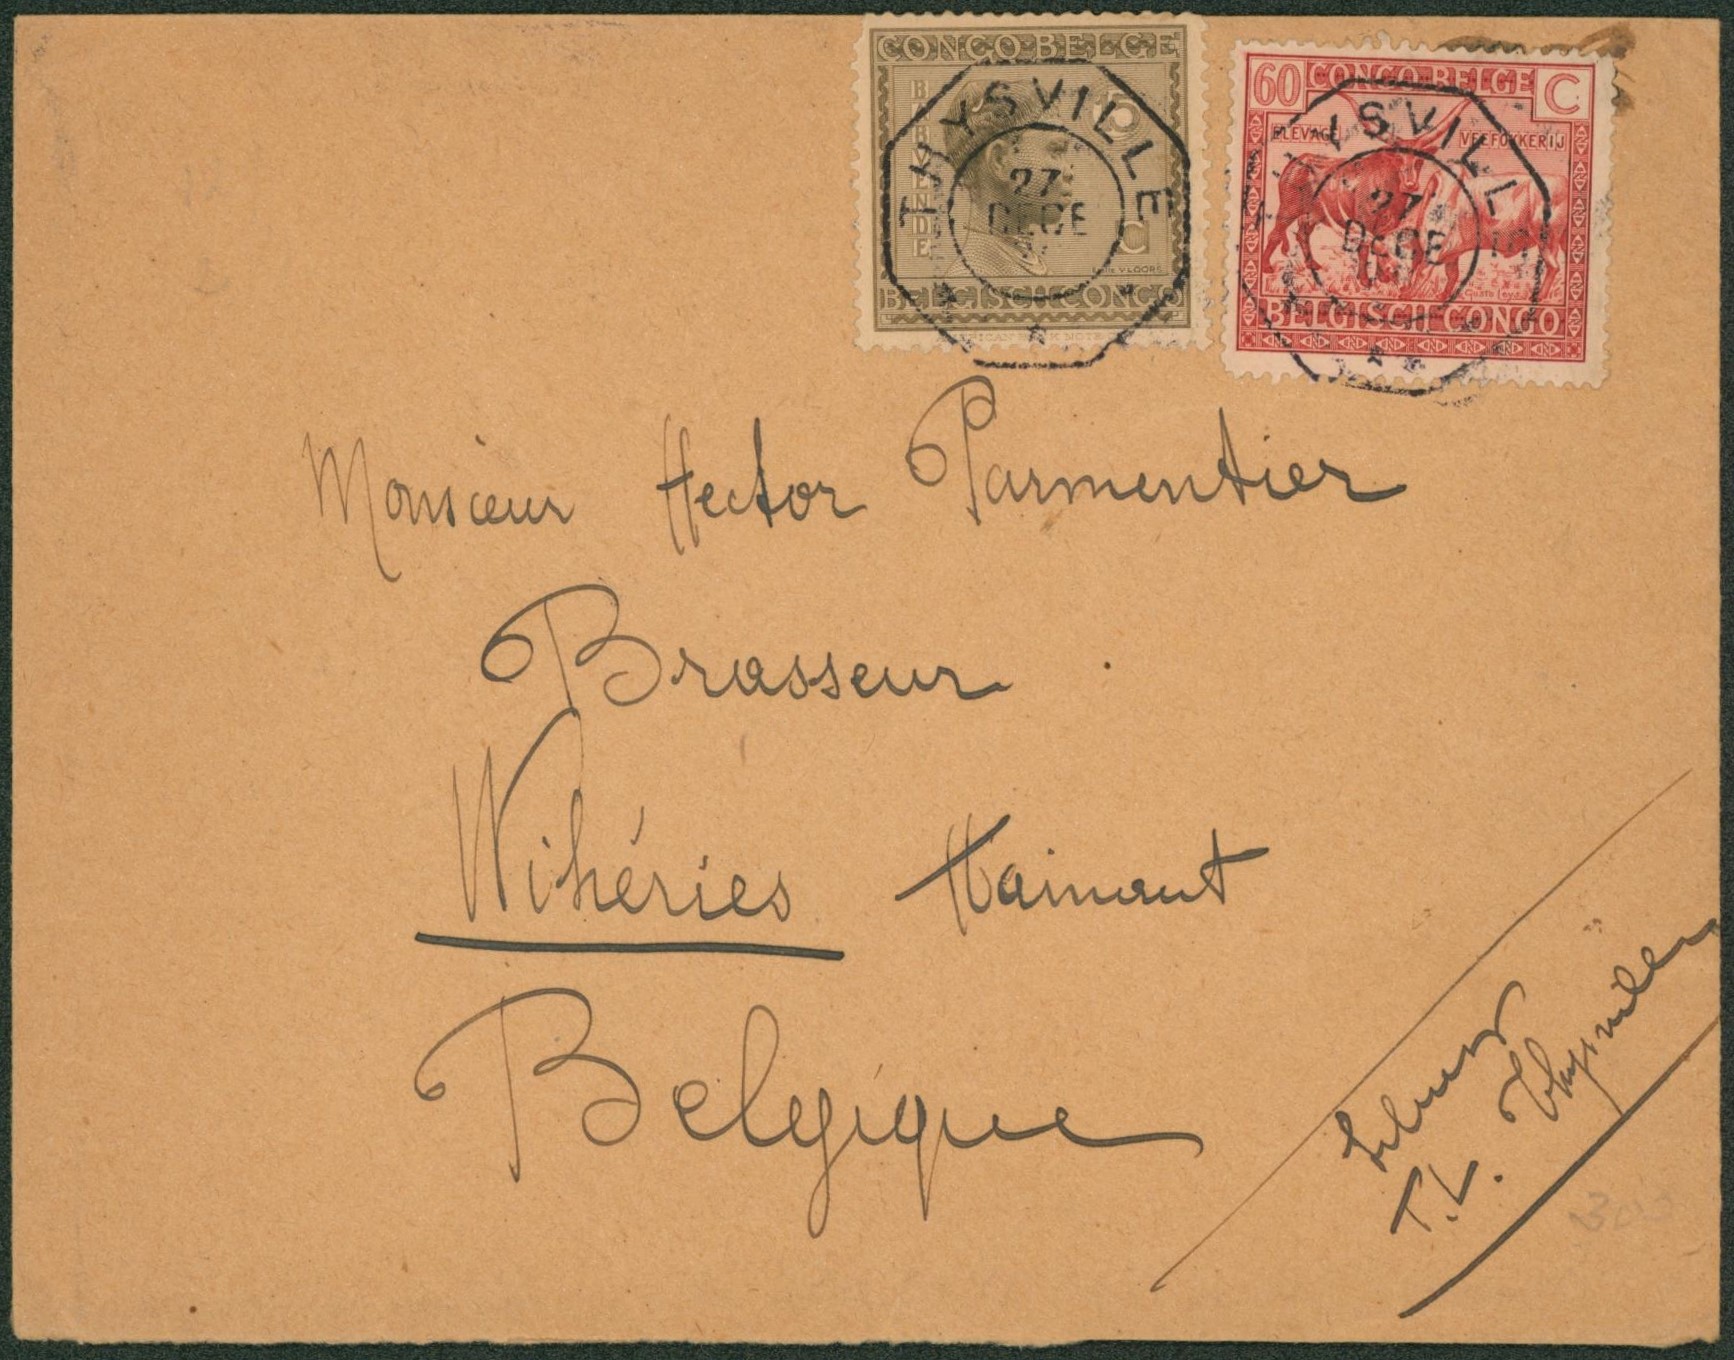 CONGO BELGE
BARUMBU ENDE
15
C
BELGISCH CONGO
60 CONGO BELGE C
ELEVAGE VEEFOKKERIJ
BELGISCH CONGO
THYSVILLE
27
DECE
YSVILL
27
DECE
Monsieur Hector Parmentier
Brasseur
Wihéries Hainaut
Belgique
T.L. Thysville